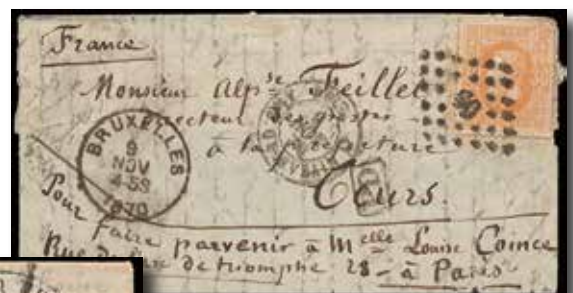 France
Monsieur Alpse Feillet
Directeur des postes
à la préfecture
Tours.
BRUXELLES
9
NOV
4-5S
1870
PD
60
Pour faire parvenir à Melle Louise Coince
Rue de triomphe 28 - à Paris